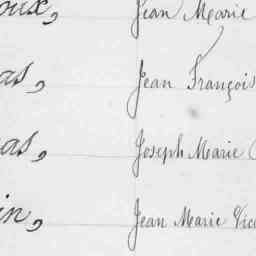 oux, Jean Marie
as, Jean François
as, Joseph Marie
in, Jean Marie